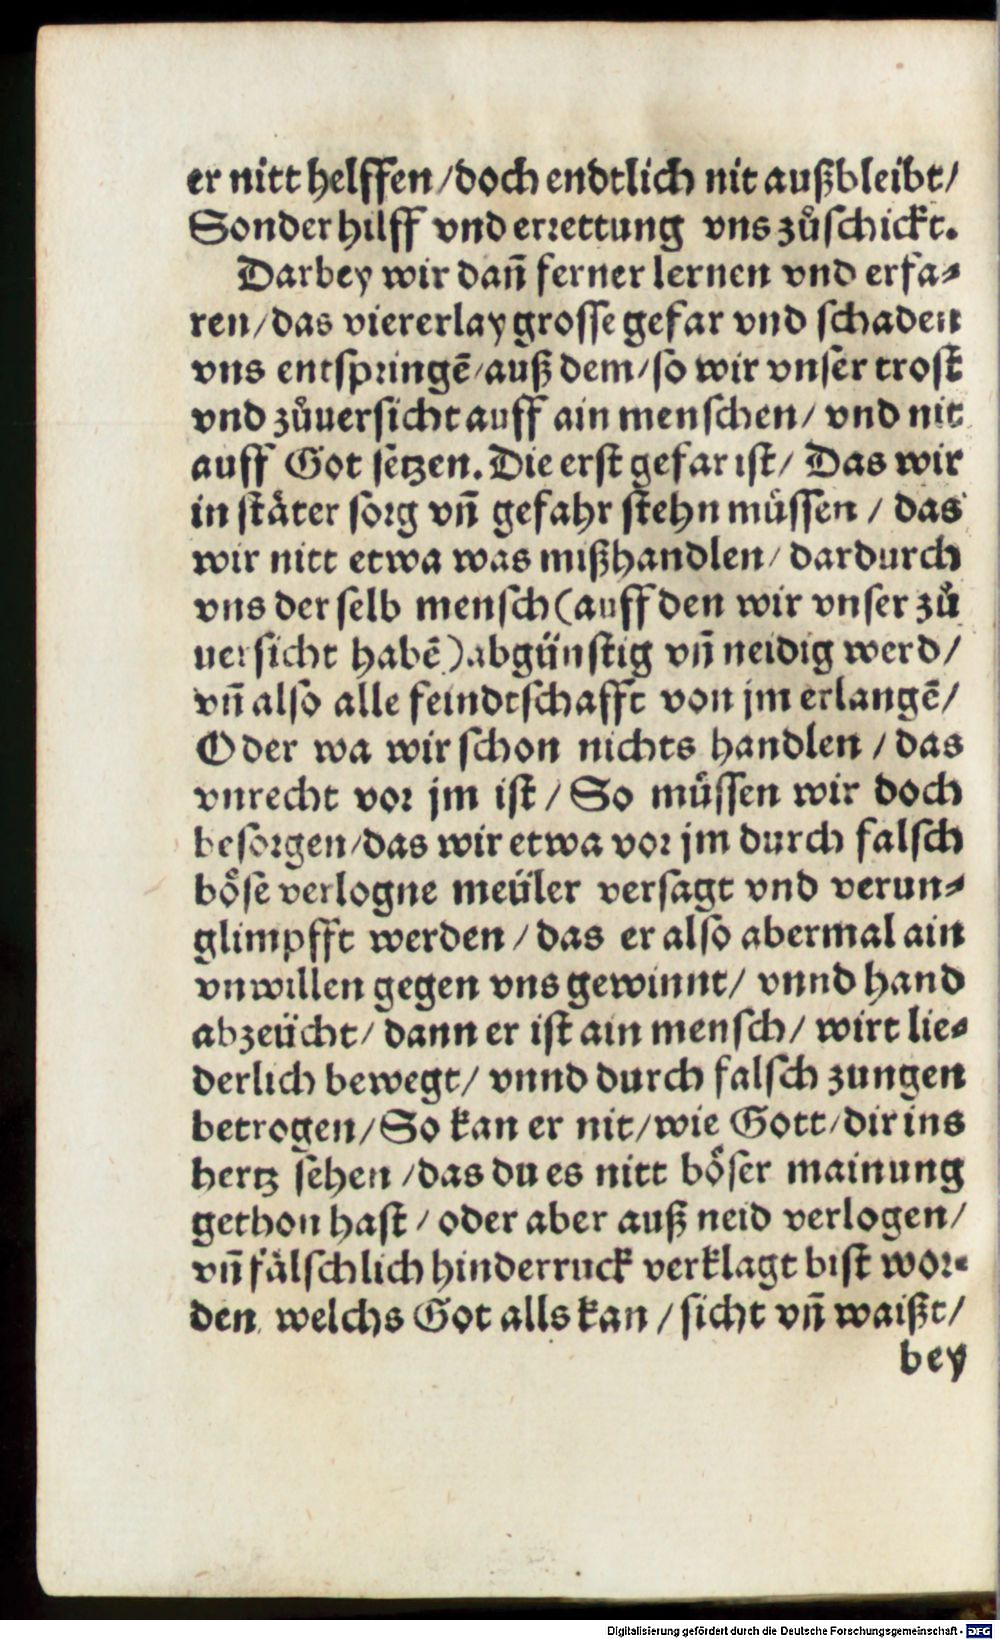 er nitt helffen/doch endtlich nit außbleibt/
Sonder hilff vnd errettung vns zůschickt.
Darbey wir dañ ferner lernen vnd erfa⸗
ren/das viererlay grosse gefar vnd schaden
vns entspringē/auß dem/so wir vnser trost
vnd zůuersicht auff ain menschen/ vnd nit
auff Got setzen. Die erst gefar ist/ Das wir
in stäter sorg vñ gefahr stehn müssen / das
wir nitt etwa was mißhandlen/ dardurch
vns der selb mensch (auff den wir vnser zů
uersicht habē) abgünstig vñ neidig werd/
vñ also alle feindtschafft von jm erlangē/
Oder wa wir schon nichts handlen / das
vnrecht vor jm ist / So müssen wir doch
besorgen/das wir etwa vor jm durch falsch
böse verlogne meüler versagt vnd verun⸗
glimpfft werden / das er also abermal ain
vnwillen gegen vns gewinnt/ vnnd hand
abzeücht/ dann er ist ain mensch/ wirt lie⸗
derlich bewegt/ vnnd durch falsch zungen
betrogen/So kan er nit/wie Gott/dir ins
hertz sehen /das du es nitt böser mainung
gethon hast / oder aber auß neid verlogen/
vñ fälschlich hinderruck verklagt bist wor⸗
den, welchs Got alls kan / sicht vñ waißt/
bey
Digitalisierung gefördert durch die Deutsche Forschungsgemeinschaft - DFG